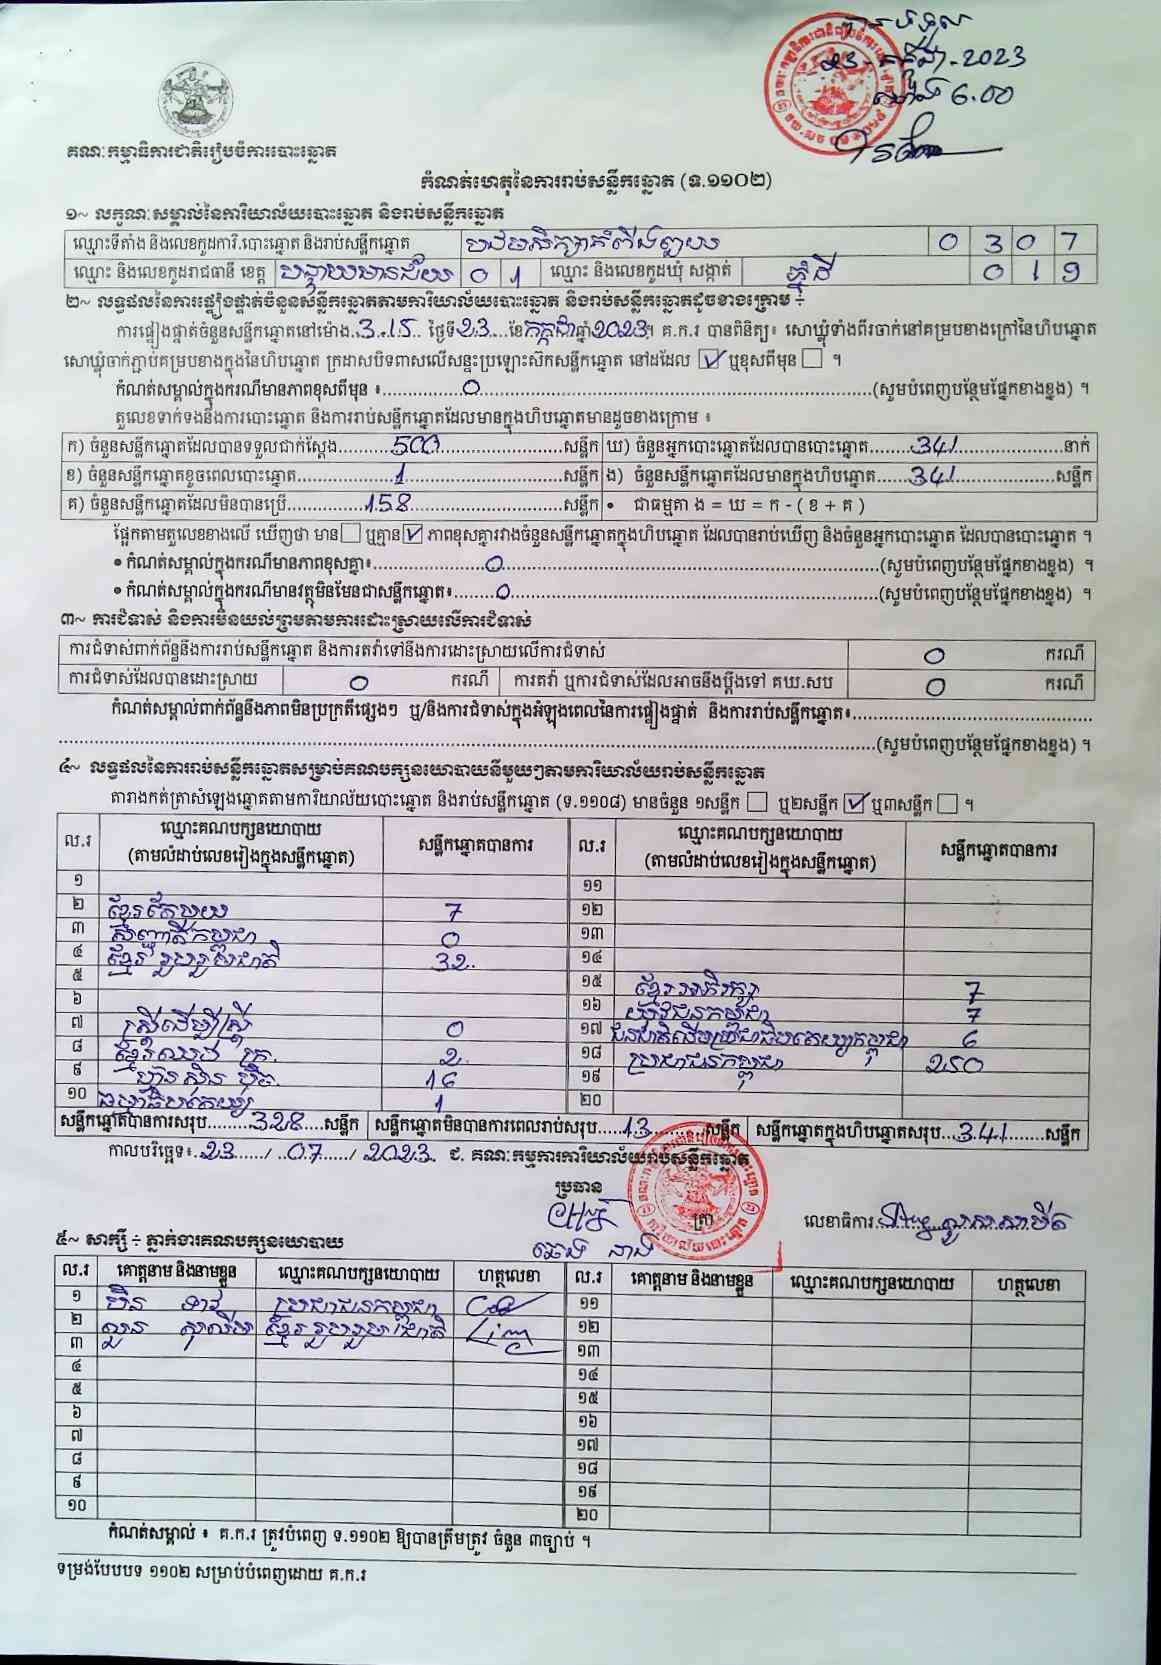 បានទទួល
23-កក្កដា-2023
ម៉ោង 6.00
គណៈកម្មាធិការជាតិរៀបចំការបោះឆ្នោត
កំណត់ហេតុនៃការរាប់សន្លឹកឆ្នោត (ទ.១១០២)
១~ លក្ខណៈសម្គាល់នៃការិយាល័យបោះឆ្នោត និងរាប់សន្លឹកឆ្នោត
ឈ្មោះទីតាំង និងលេខកូដការិ.បោះឆ្នោត និងរាប់សន្លឹកឆ្នោត 0 3 0 7
ឈ្មោះ និងលេខកូដរាជធានី ខេត្ត បន្ទាយមានជ័យ 0 1 ឈ្មោះ និងលេខកូដឃុំ សង្កាត់ ភ្នំដី 0 1 9
២~ លទ្ធផលនៃការផ្ទៀងផ្ទាត់ចំនួនសន្លឹកឆ្នោតតាមការិយាល័យបោះឆ្នោត និងរាប់សន្លឹកឆ្នោតដូចខាងក្រោម ÷
ការផ្ទៀងផ្ទាត់ចំនួនសន្លឹកឆ្នោតនៅម៉ោង 3.15 ថ្ងៃទី 23 ខែ កក្កដា ឆ្នាំ 2023 ។ គ.ក.រ បានពិនិត្យ៖ សោឃ្លុំទាំងពីរចាក់នៅគម្របខាងក្រៅនៃហិបឆ្នោត
សោឃ្លុំចាក់ភ្ជាប់គម្របខាងក្នុងនៃហិបឆ្នោត ក្រដាសបិទពាសលើសន្ទះប្រឡោះស៊កសន្លឹកឆ្នោត នៅដដែល ☑ ឬខុសពីមុន ☐ ។
កំណត់សម្គាល់ក្នុងករណីមានភាពខុសពីមុន ៖ 0 (សូមបំពេញបន្ថែមផ្នែកខាងខ្នង) ។
តួលេខទាក់ទងនឹងការបោះឆ្នោត និងការរាប់សន្លឹកឆ្នោតដែលមានក្នុងហិបឆ្នោតមានដូចខាងក្រោម ៖
ក) ចំនួនសន្លឹកឆ្នោតដែលបានទទួលជាក់ស្តែង 500 សន្លឹក ឃ) ចំនួនអ្នកបោះឆ្នោតដែលបានបោះឆ្នោត 341 នាក់
ខ) ចំនួនសន្លឹកឆ្នោតខូចពេលបោះឆ្នោត 1 សន្លឹក ង) ចំនួនសន្លឹកឆ្នោតដែលមានក្នុងហិបឆ្នោត 341 សន្លឹក
គ) ចំនួនសន្លឹកឆ្នោតដែលមិនបានប្រើ 158 សន្លឹក • ជាធម្មតា ង = ឃ = ក - ( ខ + គ )
ផ្អែកតាមតួលេខខាងលើ ឃើញថា មាន ☐ ឬគ្មាន ☑ ភាពខុសគ្នារវាងចំនួនសន្លឹកឆ្នោតក្នុងហិបឆ្នោត ដែលបានរាប់ឃើញ និងចំនួនអ្នកបោះឆ្នោត ដែលបានបោះឆ្នោត ។
• កំណត់សម្គាល់ក្នុងករណីមានភាពខុសគ្នា៖ 0 (សូមបំពេញបន្ថែមផ្នែកខាងខ្នង) ។
• កំណត់សម្គាល់ក្នុងករណីមានវត្ថុមិនមែនជាសន្លឹកឆ្នោត៖ 0 (សូមបំពេញបន្ថែមផ្នែកខាងខ្នង) ។
៣~ ការជំទាស់ និងការមិនយល់ព្រមតាមការដោះស្រាយលើការជំទាស់
ការជំទាស់ពាក់ព័ន្ធនឹងការរាប់សន្លឹកឆ្នោត និងការតវ៉ាទៅនឹងការដោះស្រាយលើការជំទាស់ 0 ករណី
ការជំទាស់ដែលបានដោះស្រាយ 0 ករណី ការតវ៉ា ឬការជំទាស់ដែលអាចនឹងប្តឹងទៅ គឃ.សប 0 ករណី
កំណត់សម្គាល់ពាក់ព័ន្ធនឹងភាពមិនប្រក្រតីផ្សេងៗ ឬ/និងការជំទាស់ក្នុងអំឡុងពេលនៃការផ្ទៀងផ្ទាត់ និងការរាប់សន្លឹកឆ្នោត៖
(សូមបំពេញបន្ថែមផ្នែកខាងខ្នង) ។
៤~ លទ្ធផលនៃការរាប់សន្លឹកឆ្នោតសម្រាប់គណបក្សនយោបាយនីមួយៗតាមការិយាល័យរាប់សន្លឹកឆ្នោត
តារាងកត់ត្រាសំឡេងឆ្នោតតាមការិយាល័យបោះឆ្នោត និងរាប់សន្លឹកឆ្នោត (ទ.១១០៨) មានចំនួន ១សន្លឹក ☐ ឬ២សន្លឹក ☑ ឬ៣សន្លឹក ☐ ។
ល.រ ឈ្មោះគណបក្សនយោបាយ សន្លឹកឆ្នោតបានការ ល.រ ឈ្មោះគណបក្សនយោបាយ សន្លឹកឆ្នោតបានការ
(តាមលំដាប់លេខរៀងក្នុងសន្លឹកឆ្នោត) (តាមលំដាប់លេខរៀងក្នុងសន្លឹកឆ្នោត)
១ ១១
២ ខ្មែរតែមួយ 7 ១២
៣ សញ្ជាតិកម្ពុជា 0 ១៣
៤ ខ្មែររួបរួមជាតិ 32 ១៤
៥ ១៥ ខ្មែរអភិរក្ស 7
៦ ១៦ យុវជនកម្ពុជា 7
៧ ស្រីដើម្បីស្រី 0 ១៧ ជនជាតិដើមប្រជាធិបតេយ្យកម្ពុជា 6
៨ 2 ១៨ ប្រជាជនកម្ពុជា 250
៩ ហ្វ៊ុនស៊ិនប៉ិច 16 ១៩
១០ ធម្មាធិបតេយ្យ 1 ២០
សន្លឹកឆ្នោតបានការសរុប 328 សន្លឹក សន្លឹកឆ្នោតមិនបានការពេលរាប់សរុប 13 សន្លឹក សន្លឹកឆ្នោតក្នុងហិបឆ្នោតសរុប 341 សន្លឹក
កាលបរិច្ឆេទ៖ 23 / 07 / 2023 ជ. គណៈកម្មការការិយាល័យរាប់សន្លឹកឆ្នោត
ប្រធាន
ត្រា លេខាធិការ
៥~ សាក្សី ÷ ភ្នាក់ងារគណបក្សនយោបាយ
ល.រ គោត្តនាម និងនាមខ្លួន ឈ្មោះគណបក្សនយោបាយ ហត្ថលេខា ល.រ គោត្តនាម និងនាមខ្លួន ឈ្មោះគណបក្សនយោបាយ ហត្ថលេខា
១ ប្រជាជនកម្ពុជា ១១
២ ខ្មែររួបរួមជាតិ ១២
៣ ១៣
៤ ១៤
៥ ១៥
៦ ១៦
៧ ១៧
៨ ១៨
៩ ១៩
១០ ២០
កំណត់សម្គាល់ ៖ គ.ក.រ ត្រូវបំពេញ ទ.១១០២ ឱ្យបានត្រឹមត្រូវ ចំនួន ៣ច្បាប់ ។
ទម្រង់បែបបទ ១១០២ សម្រាប់បំពេញដោយ គ.ក.រ